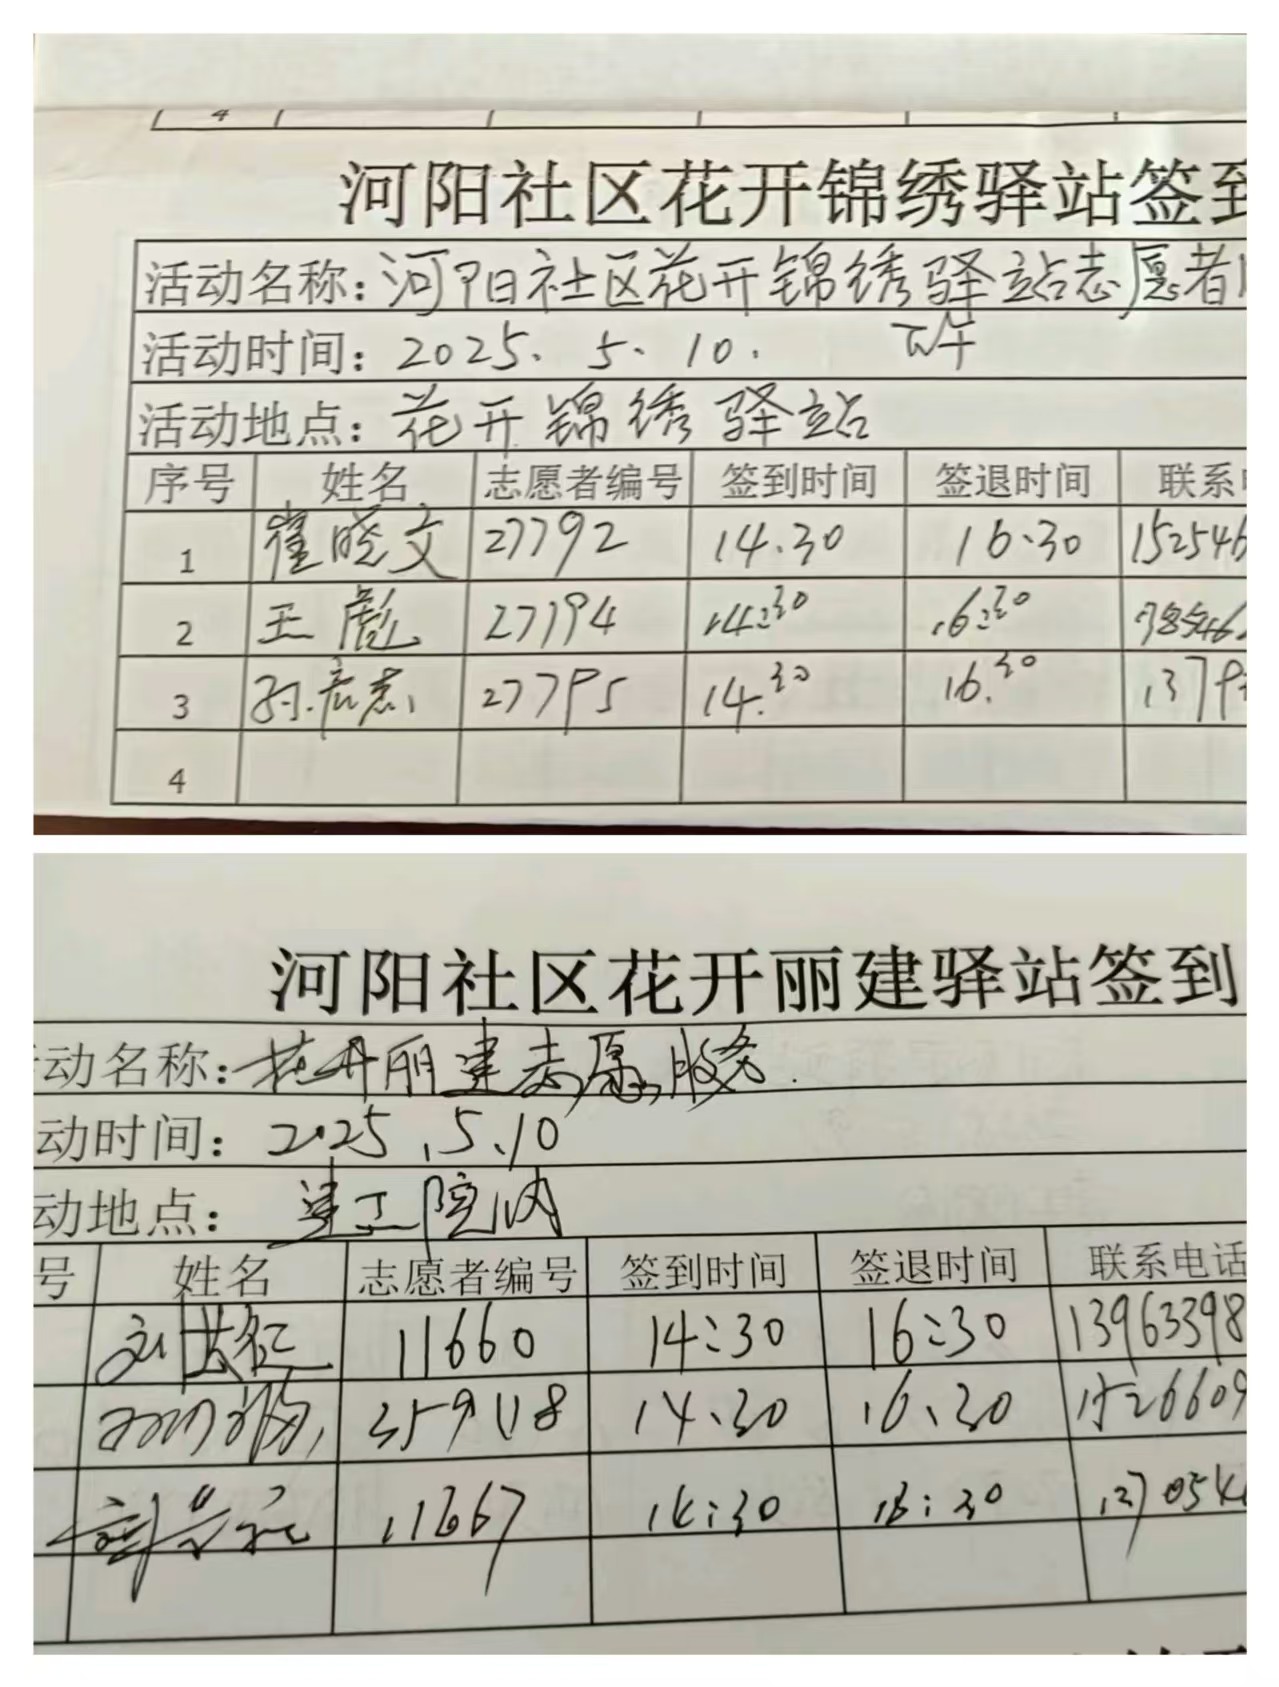 4
河阳社区花开锦绣驿站签到
活动名称：河阳社区花开锦绣驿站志愿者
活动时间：2025.5.10. 下午
活动地点：花开锦绣驿站
序号 姓名 志愿者编号 签到时间 签退时间 联系
1 崔晓文 27792 14.30 16.30 152546
2 王彪 27794 14:30 16:30 138546
3 孙宏志 27795 14.30 16.30 1379
4
河阳社区花开丽建驿站签到
动名称：花开丽建志愿服务.
动时间：2025.5.10
动地点：建工院内
号 姓名 志愿者编号 签到时间 签退时间 联系电话
11660 14:30 16:30 13963398
14.30 16.30 1526609
11667 14:30 16:30 137054